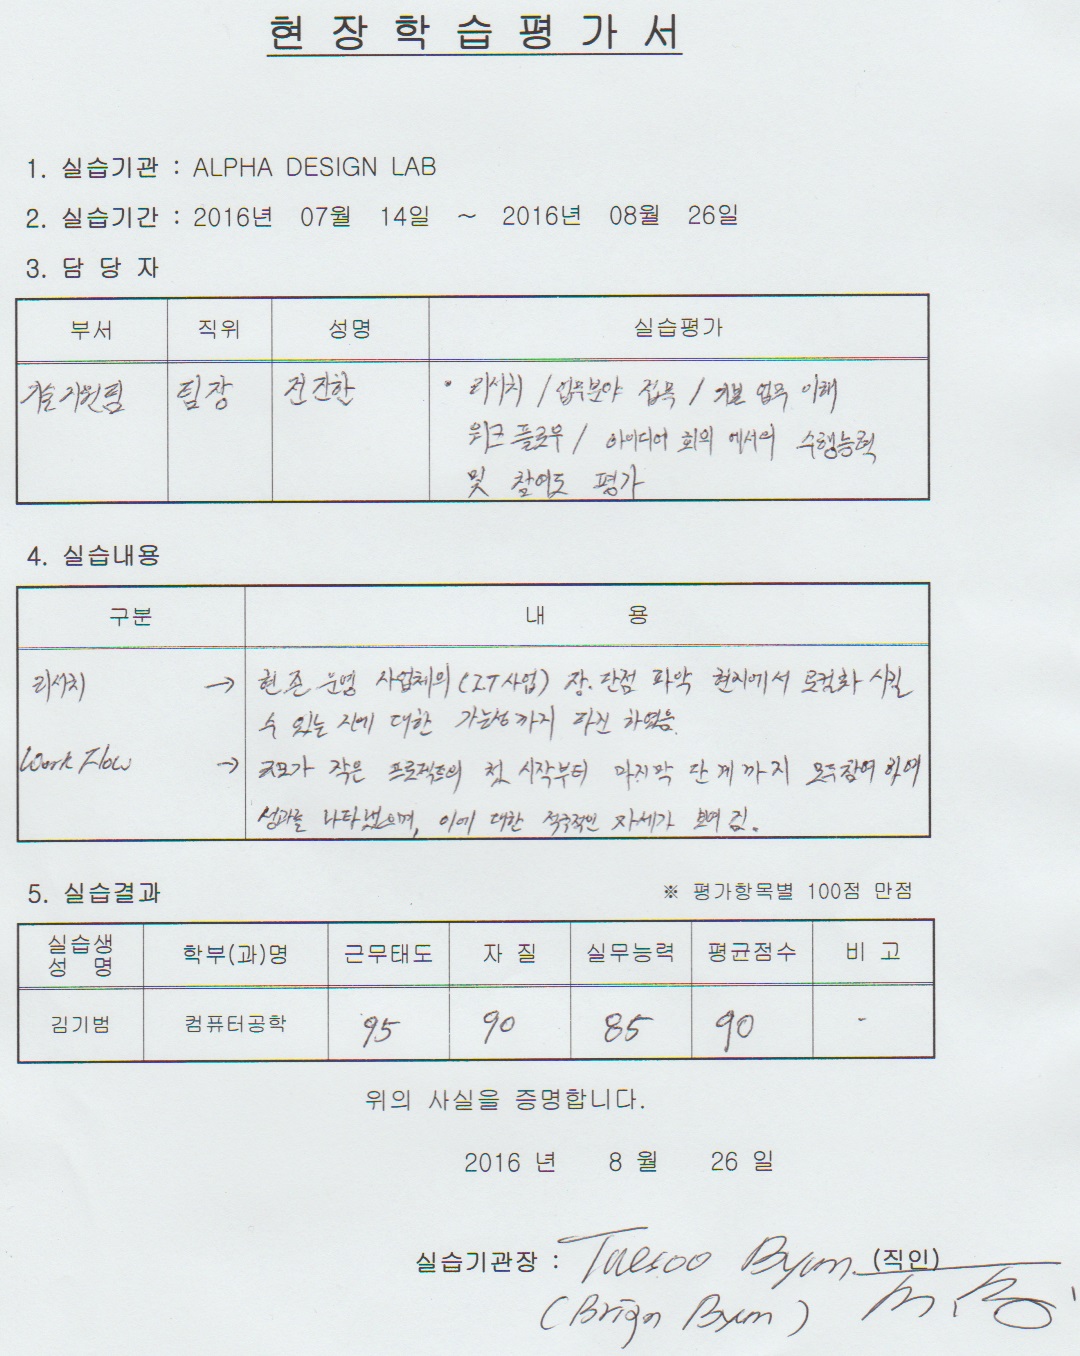 현 장 학 습 평 가 서
1. 실습기관 : ALPHA DESIGN LAB
2. 실습기간 : 2016년 07월 14일 ~ 2016년 08월 26일
3. 담 당 자
부서 직위 성명 실습평가
기술지원팀 팀장 전진한 • 리서치 / 업무분야 접목 / 기본 업무 이해
워크플로우 / 아이디어 회의 에서의 수행능력
및 참여도 평가
4. 실습내용
구분 내 용
리서치 → 현존 운영 사업체의 (IT사업) 장.단점 파악 현지에서 로컬화 시킬
수 있는 지에 대한 가능성까지 타진 하였음.
Work Flow → 규모가 작은 프로젝트의 첫 시작부터 마지막 단계까지 모두참여 하여
성과를 나타냈으며, 이에 대한 적극적인 자세가 보여 짐.
5. 실습결과 ※ 평가항목별 100점 만점
실습생 성 명 학부(과)명 근무태도 자 질 실무능력 평균점수 비 고
김기범 컴퓨터공학 95 90 85 90 -
위의 사실을 증명합니다.
2016 년 8 월 26 일
실습기관장 : Taesoo Byun (직인)
(Brian Byun)